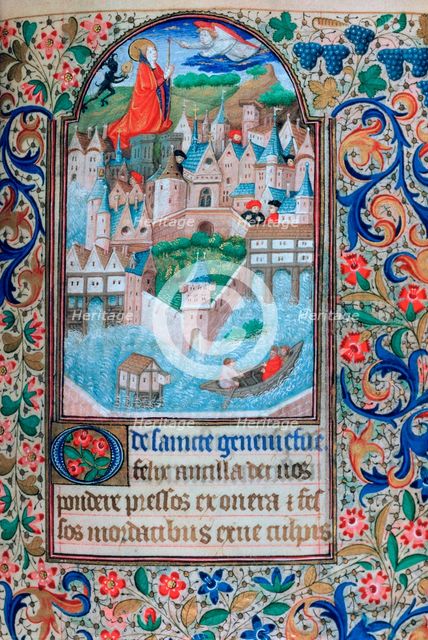 De sancte geneuiefue.
O felix ancilla dei nos
pondere pressos exonera & fes
sos mordacibus exue culpis
Heritage
Heritage
Heritage
Heritage
Heritage
Heritage